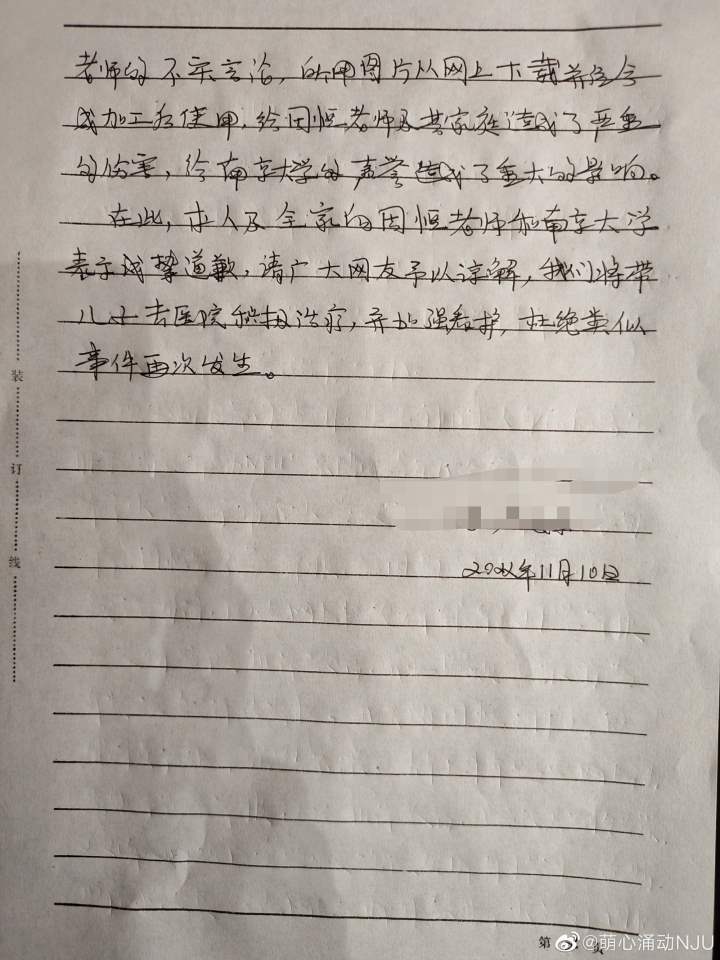 老师的不实言论，所用图片从网上下载并经合
成加工后使用，给周恒老师及其家庭造成了严重
的伤害，给南京大学的声誉造成了重大的影响。
在此，本人及全家向周恒老师和南京大学
表示诚挚道歉，请广大网友予以谅解，我们将带
儿子去医院积极治疗，并加强看护，杜绝类似
事件再次发生。
年11月10日
装
订
线
第 页
@萌心涌动NJU